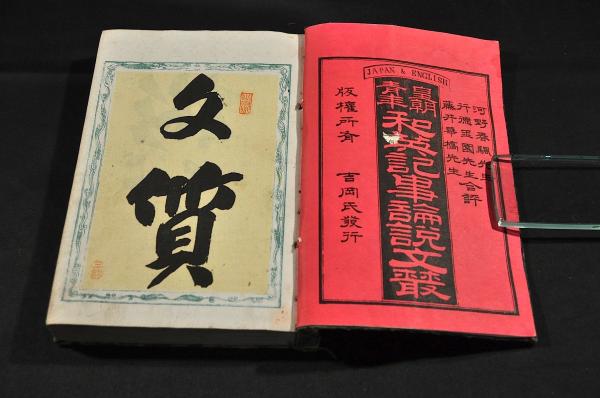 JAPAN & ENGLISH
河野春颿先生
行德玉園先生合評
藤井華橋先生
皇朝
青年
和英記事論説文叢
版權所有 吉岡氏發行
文質